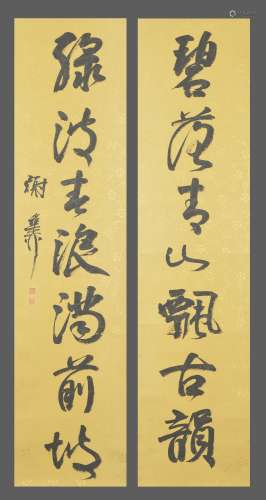 碧落青山飄古韻
綠波春浪滿前坡
謝